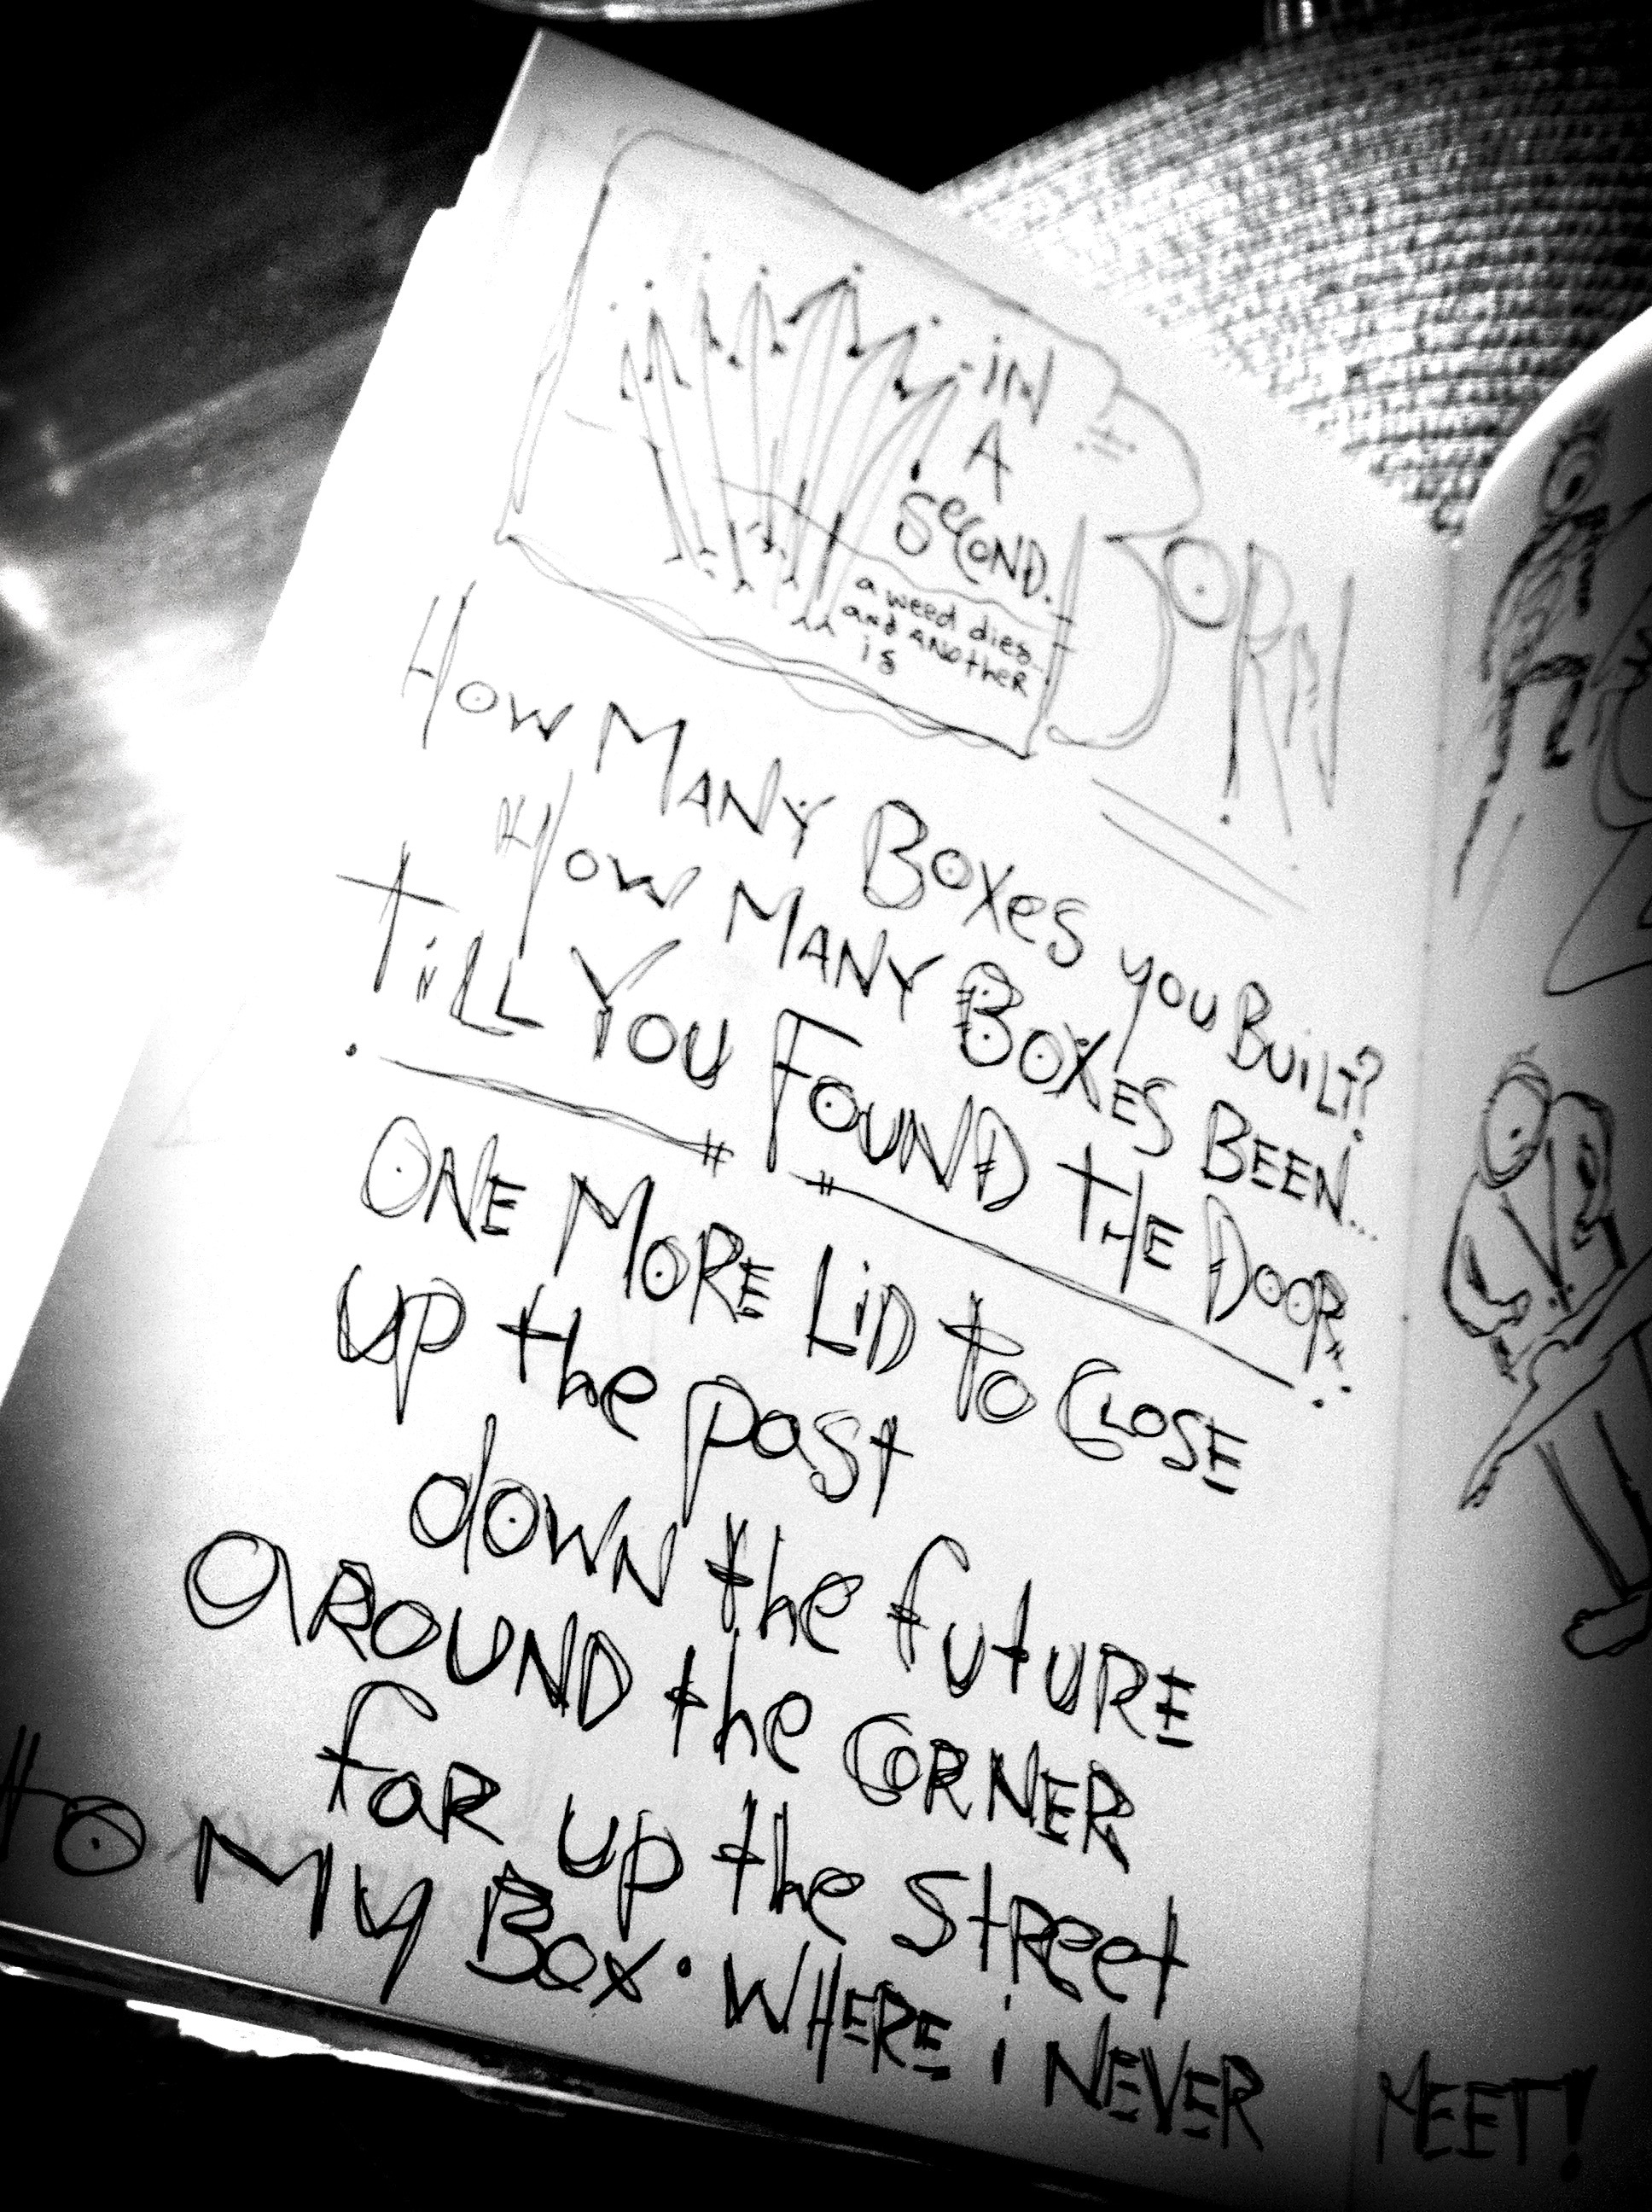 -in
A
SecOND.
a weed dies
and ANotheR
is
BORN
How MANY BOXes you BuiLT?
How MANY BOXES BEEN...
TiLL YOU FOUND THE DOOR
ONE MORE LiD to CLOSE
up the past
down the futuRE
aROUND the CORNER
faR up the StReet
to My Box. WHERE i NEVER MEET!